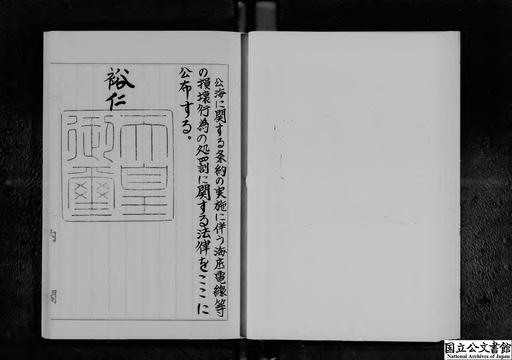 公海に関する条約の実施に伴う海底電線等
の損壊行為の処罰に関する法律をここに
公布する。
裕仁
天皇
御璽
国立公文書館
National Archives of Japan